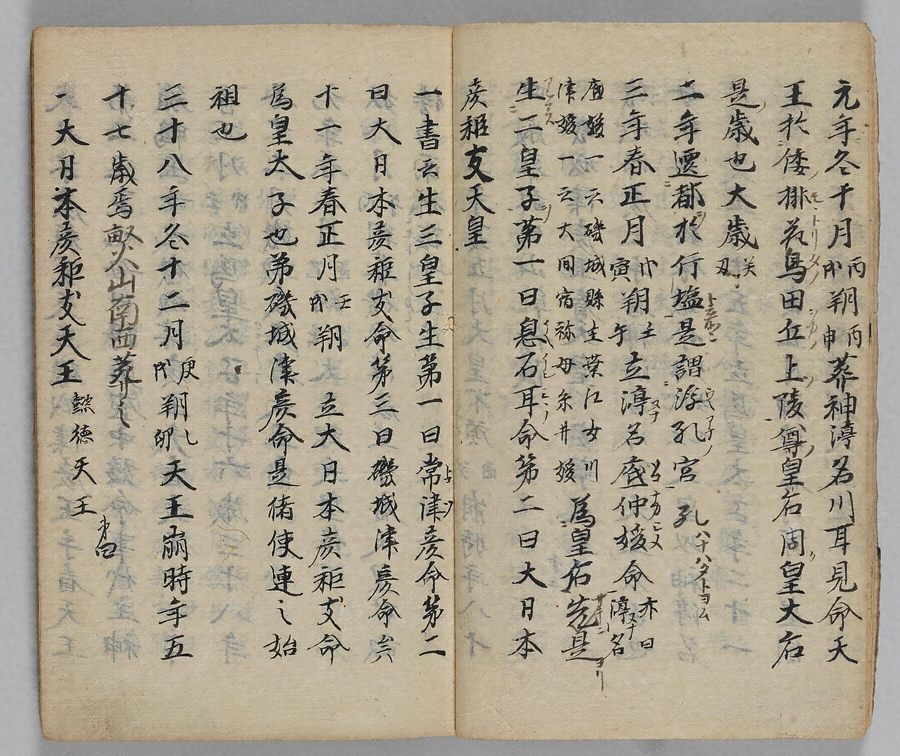 元年冬十月丙戌朔丙申葬神渟名川耳見命天
王於倭排花鳥田丘上陵尊皇后周皇大后
是歳也大歳癸丑
二年遷都於行塩是謂浮孔宮 孔ハナハタトヨム
三年春正月戊寅朔壬午立渟名底仲媛命亦曰渟名
底媛一云磯城縣主葉江女川
津媛一云大間宿祢母糸井媛 為皇后先是
生二皇子第一曰息石耳命第二曰大日本
彦耜友天皇
一書云生三皇子生第一曰常津彦命第二
曰大日本彦耜友命第三曰磯城津彦命矣
十一年春正月壬戌朔立大日本彦耜友命
為皇太子也弟磯城津彦命是猪使連之始
祖也
三十八年冬十二月庚戌朔乙卯天王崩時年五
十七歳焉畝火山南西葬
一大日本彦耜友天王 懿徳天王 第四